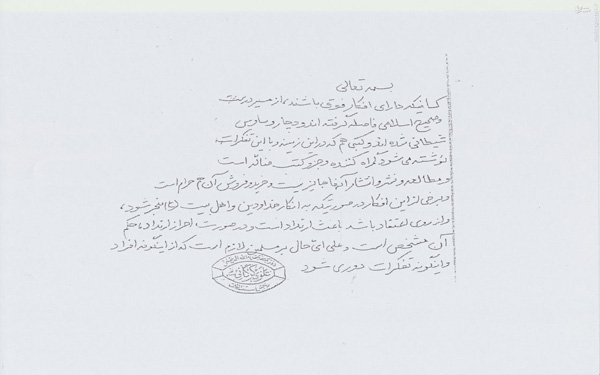 بسمه تعالی
کسانیکه دارای افکار فوق باشند، از مسیر درست
و صحیح اسلامی فاصله گرفته اند و دچار وساوس
شیطانی شده اند و کتبی هم که در این زمینه و با این تفکرات
نوشته می شود گمراه کننده و جزو کتب ضالّه است
و مطالعه و نشر و انتشار آنها جایز نیست و خرید و فروش آن هم حرام است
و برخی از این افکار در صورتیکه به انکار خدا و دین و اهل بیت (ع) منجر شود،
و از روی اعتقاد باشد باعث ارتداد است و در صورت احراز ارتداد، حکم
آن مشخص است و علی ایّ حال بر مسلمین لازم است که از اینگونه افراد
و اینگونه تفکرات دوری شود